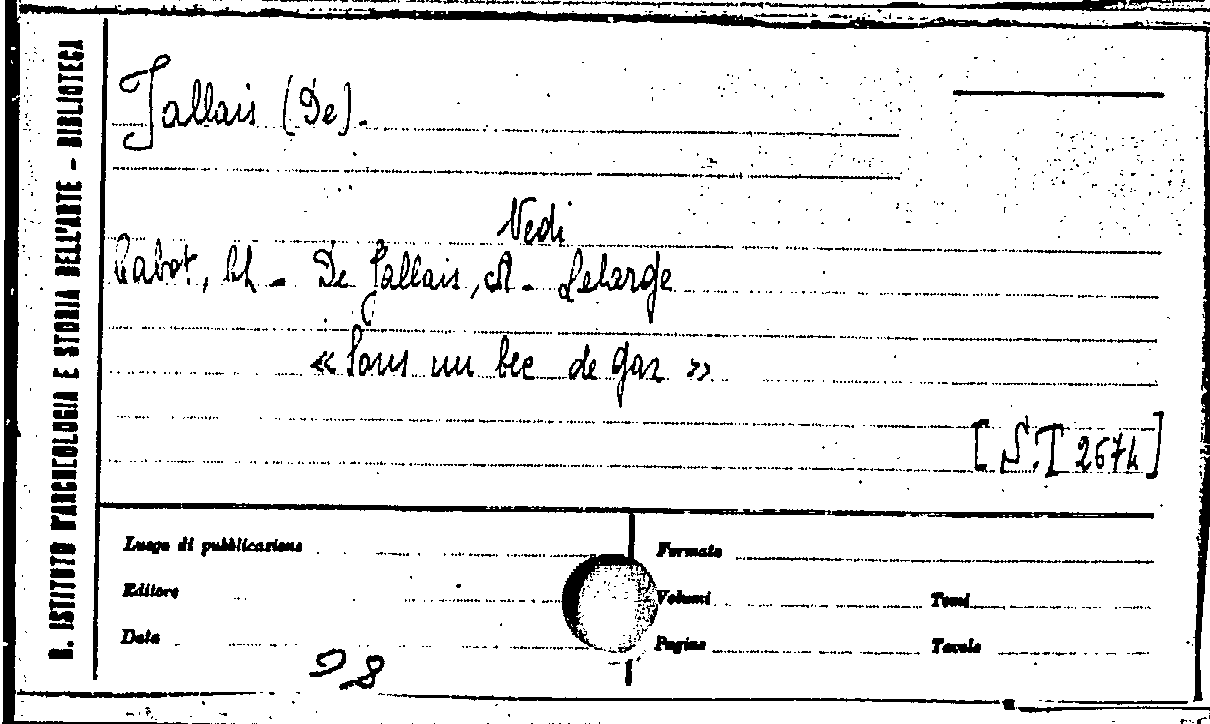 R. ISTITUTO D'ARCHEOLOGIA E STORIA DELL'ARTE - BIBLIOTECA
Jallais (De).
Vedi
Rabot, Ch - De Jallais, A - Lelarge
« Sous un bec de gaz »
[S.T 2674]
Luogo di pubblicazione
Formato
Editore
Volumi
Tomi
Data
Pagine
Tavole
98